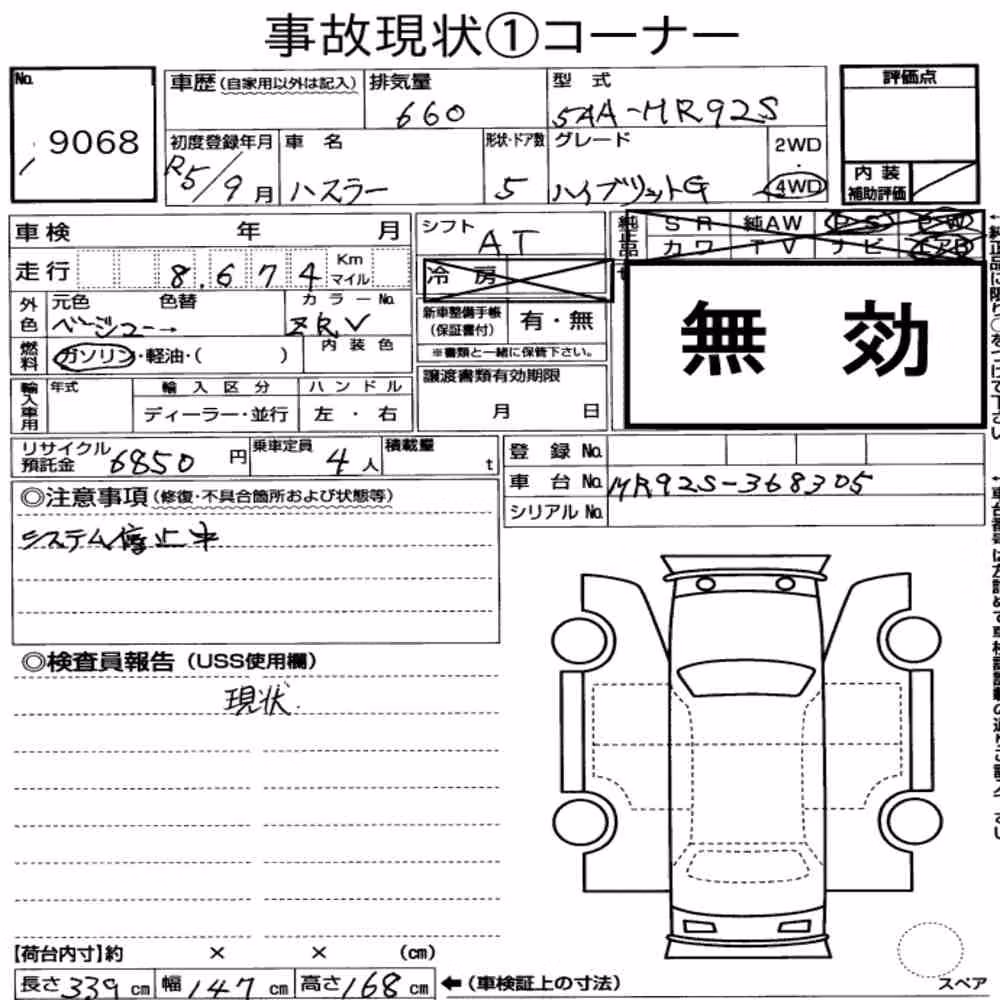 事故現状①コーナー
No. 9068
車歴(自家用以外は記入)
排気量 660
型式 5AA-MR92S
評価点
内装補助評価
初度登録年月 R5/9月
車名 ハスラー
形状・ドア数 5
グレード ハイブリットG
2WD・4WD
車検 年 月
走行 8.674 Km マイル
シフト AT
冷房
純正品 SR 純AW PS PW
カワ TV ナビ エアB
外色 元色 色替 ベージュー→
カラーNo. ZRV
燃料 ガソリン・軽油・( )
内装色
新車整備手帳(保証書付) 有・無
※書類と一緒に保管下さい。
無効
輸入車用 年式 輸入区分 ハンドル
ディーラー・並行 左・右
譲渡書類有効期限
月 日
リサイクル預託金 6850円
乗車定員 4人
積載量 t
登録No.
車台No. MR92S-368305
シリアルNo.
◎注意事項(修復・不具合箇所および状態等)
システム停止中
◎検査員報告(USS使用欄)
現状.
【荷台内寸】約 × × (cm)
長さ339cm 幅147cm 高さ168cm ←(車検証上の寸法)
スペア